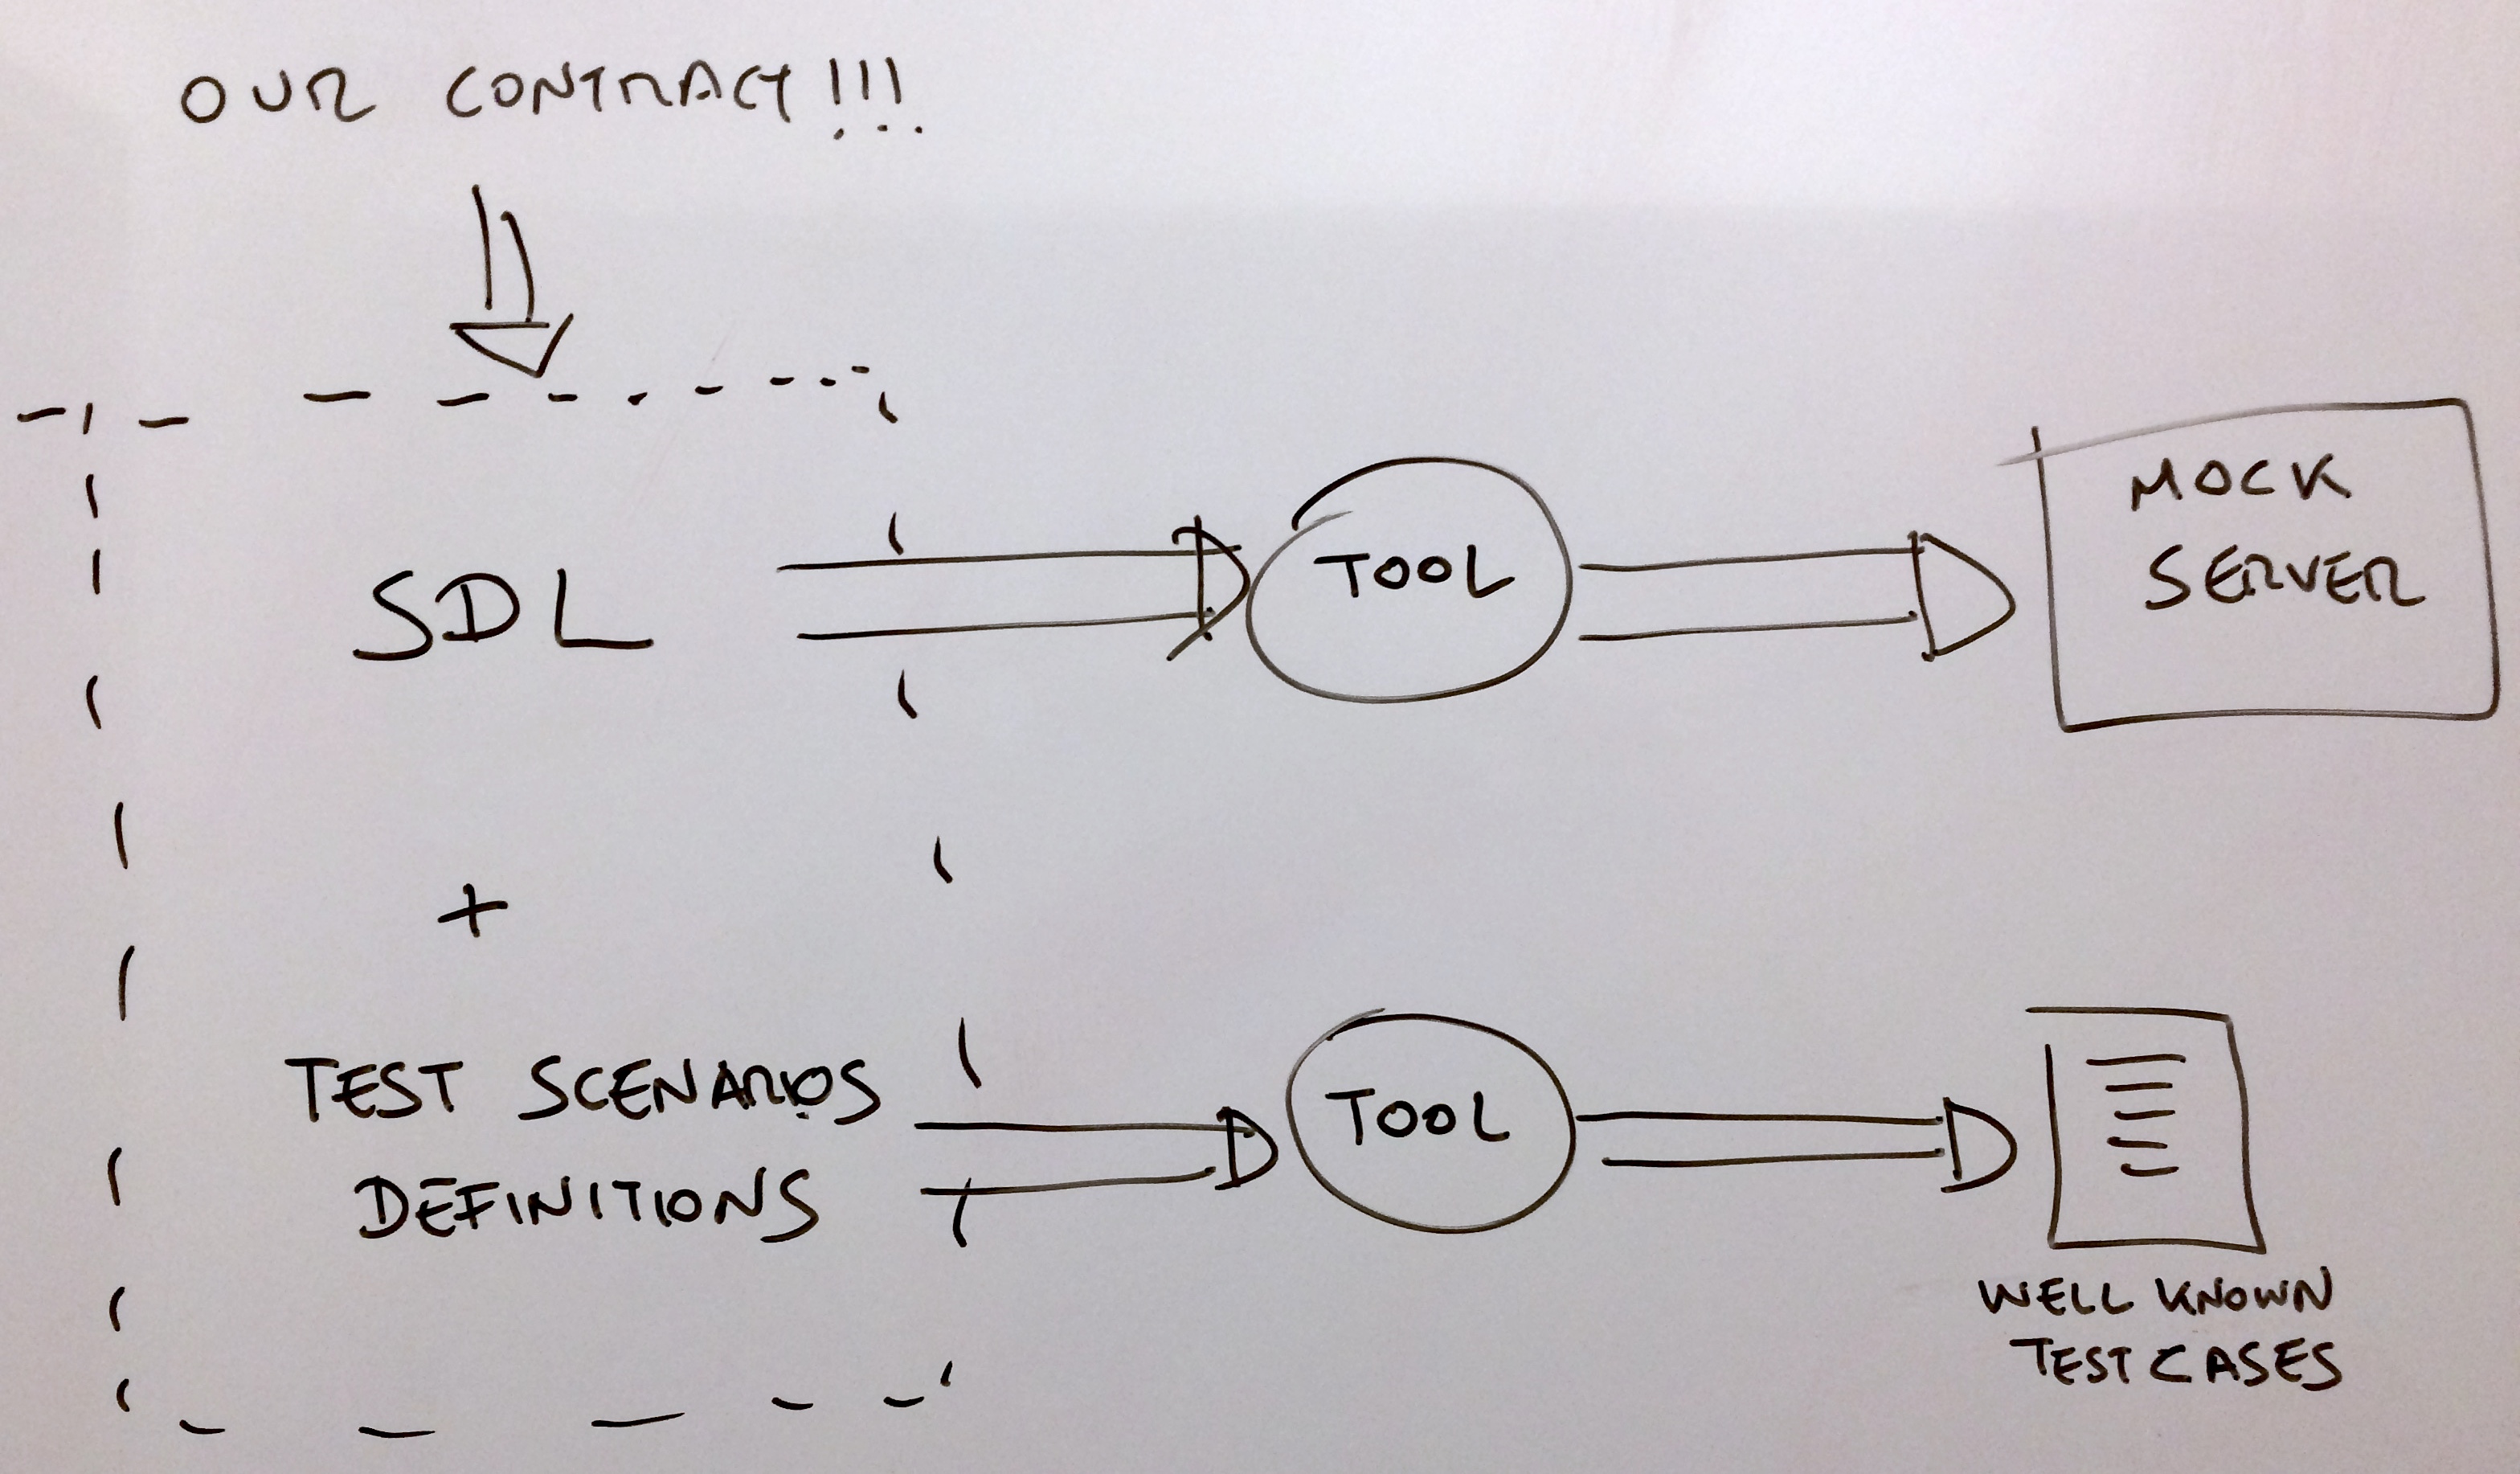 OUR CONTRACT!!!
SDL
TOOL
MOCK
SERVER
+
TEST SCENARIOS
DEFINITIONS
TOOL
WELL KNOWN
TEST CASES